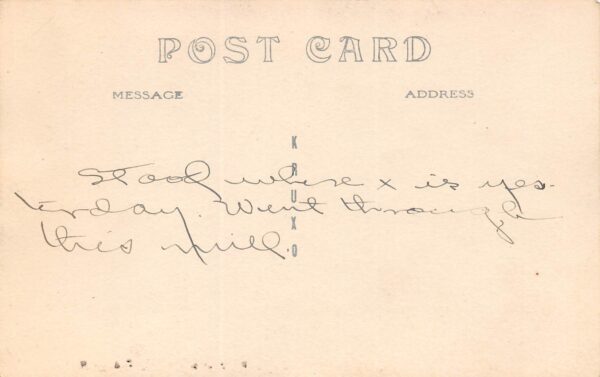 POST CARD
MESSAGE
ADDRESS
KRUXO
Stood where x is yes-
terday. Went through
this mill.